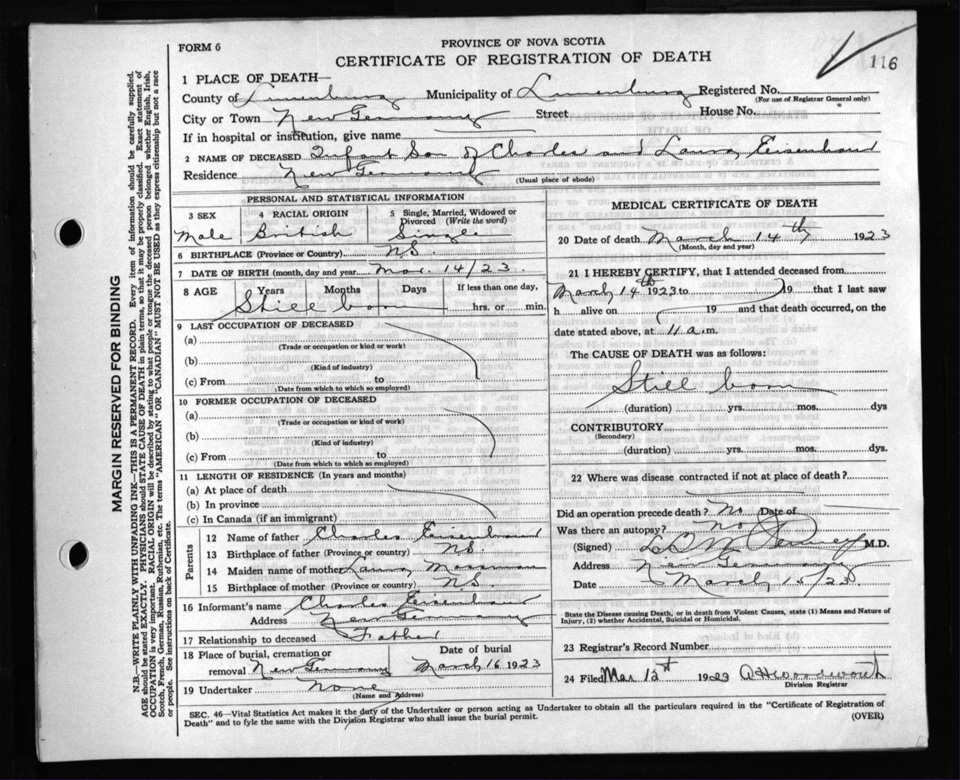 FORM 6
PROVINCE OF NOVA SCOTIA
CERTIFICATE OF REGISTRATION OF DEATH
116
1 PLACE OF DEATH—
County of Lunenburg Municipality of Lunenburg Registered No.
(For use of Registrar General only)
City or Town New Germany Street House No.
If in hospital or institution, give name
2 NAME OF DECEASED Infant Son of Charles and Laura Eisenhaur
Residence New Germany
(Usual place of abode)
PERSONAL AND STATISTICAL INFORMATION
3 SEX
Male
4 RACIAL ORIGIN
British
5 Single, Married, Widowed or Divorced (Write the word)
Single
6 BIRTHPLACE (Province or Country) N.S.
7 DATE OF BIRTH (month, day and year) Mar. 14/23.
8 AGE Years Months Days If less than one day,
Still born hrs. or min.
9 LAST OCCUPATION OF DECEASED
(a)
(Trade or occupation or kind of work)
(b)
(Kind of industry)
(c) From to
(Date from which to which so employed)
10 FORMER OCCUPATION OF DECEASED
(a)
(Trade or occupation or kind of work)
(b)
(Kind of industry)
(c) From to
(Date from which to which so employed)
11 LENGTH OF RESIDENCE (In years and months)
(a) At place of death
(b) In province
(c) In Canada (if an immigrant)
Parents
12 Name of father Charles Eisenhaur
13 Birthplace of father (Province or country) N.S.
14 Maiden name of mother Laura Mossman
15 Birthplace of mother (Province or country) N.S.
16 Informant's name Charles Eisenhaur
Address New Germany
17 Relationship to deceased Father
18 Place of burial, cremation or removal New Germany
Date of burial
March 16 1923
19 Undertaker None
(Name and Address)
MEDICAL CERTIFICATE OF DEATH
20 Date of death March 14th 1923
(Month, day and year)
21 I HEREBY CERTIFY, that I attended deceased from
March 14th 1923 to 19 that I last saw
h alive on 19 and that death occurred, on the
date stated above, at 11 a.m.
The CAUSE OF DEATH was as follows:
Still born
(duration) yrs. mos. dys
CONTRIBUTORY
(Secondary)
(duration) yrs. mos. dys
22 Where was disease contracted if not at place of death?
Did an operation precede death? No Date of
Was there an autopsy? No
(Signed) M.D.
Address New Germany
Date March 15/23
State the Disease causing Death, or in death from Violent Causes, state (1) Means and Nature of
Injury, (2) whether Accidental, Suicidal or Homicidal.
23 Registrar's Record Number
24 Filed Mar 1923
Division Registrar
SEC. 46—Vital Statistics Act makes it the duty of the Undertaker or person acting as Undertaker to obtain all the particulars required in the "Certificate of Registration of
Death" and to fyle the same with the Division Registrar who shall issue the burial permit.
(OVER)
MARGIN RESERVED FOR BINDING
N.B.—WRITE PLAINLY WITH UNFADING INK—THIS IS A PERMANENT RECORD. Every item of information should be carefully supplied.
AGE should be stated EXACTLY. PHYSICIANS should STATE CAUSE OF DEATH in plain terms, so that it may be properly classified. Exact statement of
OCCUPATION is very important. RACIAL ORIGIN will be described by stating to what people or tongue the deceased person belonged whether English, Irish,
Scotch, French, German, Russian, Ruthenian, etc. The terms "AMERICAN" OR "CANADIAN" MUST NOT BE USED as they express citizenship but not a race
or people. See instructions on back of Certificate.